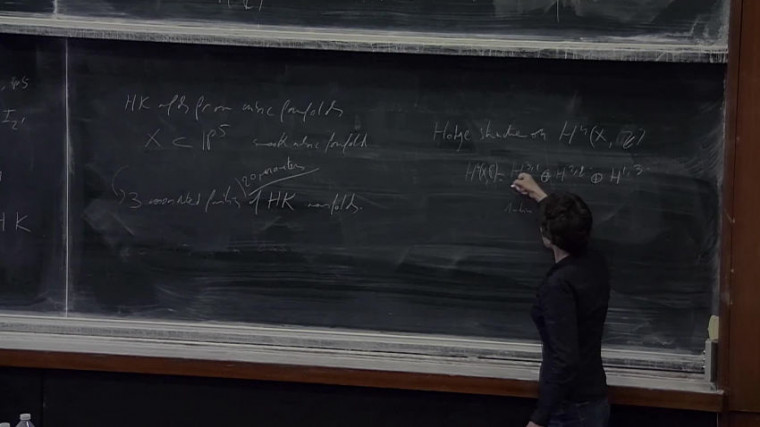 HK mflds from cubic fourfolds
X ⊂ IP⁵ smooth cubic fourfold
20 parameters
3 associated families of HK manifolds.
Hodge structure on H⁴(X, Z)
H⁴(X, C) = H³,¹ ⊕ H²,² ⊕ H¹,³
, IP5
HK